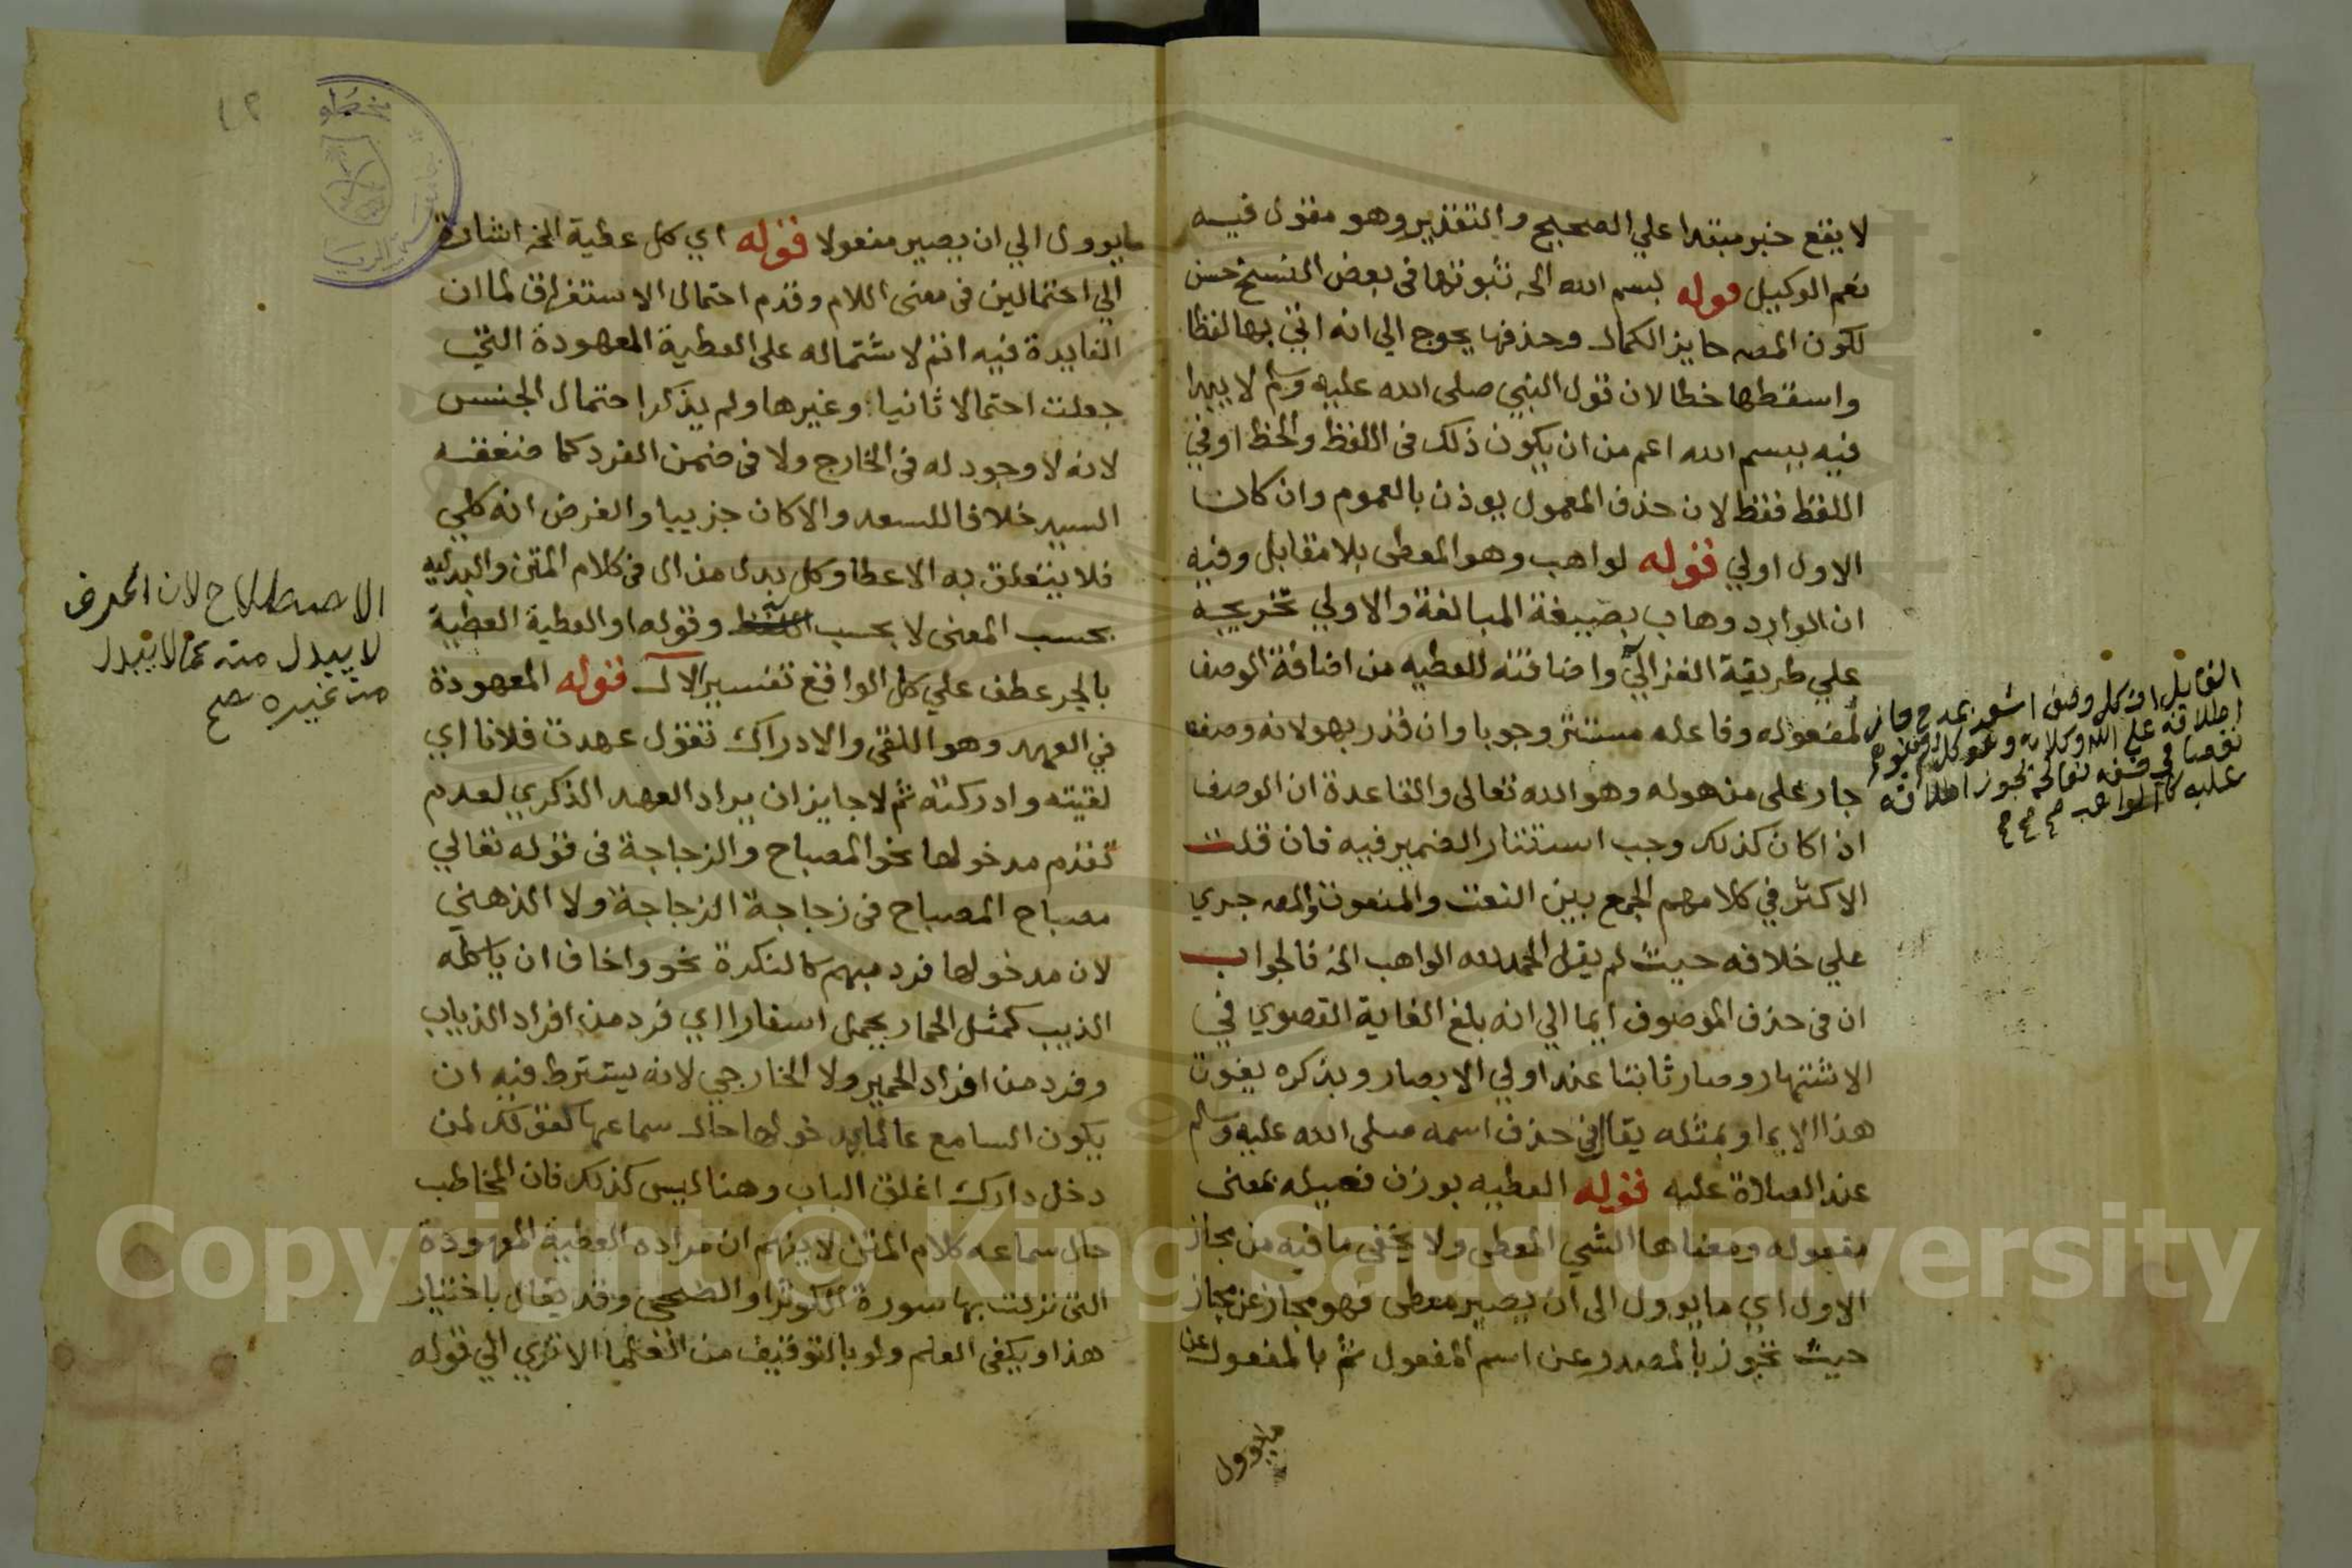 لا يقع خبر مبتدا علي الصحيح والتقدير وهو مقول فيه
نعم الوكيل قوله بسم الله الخ ثبوتها في بعض النسخ حسن
لكون المصـ حايز الكمال وحذفها يحوج الي انه اتي بها لفظا
واسقطها خطا لان قول النبي صلى الله عليه وسلم لا يبدا
فيه ببسم الله اعم من ان يكون ذلك في اللفظ والخط او في
اللفظ فقط لان حذف المعمول يوذن بالعموم وان كان
الاول اولي قوله لواهب وهو المعطى بلا مقابل وفيه
ان الوارد وهاب بصيغة المبالغة والاولي تخريجه
علي طريقة الغزالي واضافته للعطيه من اضافة الوصف
لمفعوله وفاعله مستتر وجوبا وان قدر بهو لانه وصف
جار على من هو له وهو الله تعالى والقاعدة ان الوصف
اذا كان كذلك وجب استتار الضمير فيه فان قلت
الاكثر في كلامهم الجمع بين النعت والمنعوت والمصـ جري
علي خلافه حيث لم يقل الحمد لله الواهب الخ فالجواب
ان في حذف الموصوف ايما الي انه بلغ الغاية القصوي في
الاشتهار وصار ثابتا عند اولي الابصار وبذكره يفوت
هذا الايما وبمثله يقال في حذف اسمه صلى الله عليه وسلم
عند الصلاة عليه قوله العطيه بوزن فعيله بمعنى
مفعوله ومعناها الشي المعطى ولا يخفى ما فيه من مجاز
الاول اي ما يوول الى ان يصير معطى فهو مجاز عن مجاز
حيث تجوز بالمصدر عن اسم المفعول ثم بالمفعول عن
مايوول
القايل ان كل وصف اشعر بمدح جاز
اطلاقه علي الله وكلاته وهو كل
نقصا في حقه تعالى يجوز اطلاقه
عليه كالواهب صح صح صح
مايوول الي ان يصير مفعولا قوله اي كل عطية الخ اشارة
الي احتمالين في معنى اللام وقدم احتمال الاستغراق لما ان
الفايدة فيه اتم لاشتماله على العطية المعهودة التي
جعلت احتمالا ثانيا وغيرها ولم يذكر احتمال الجنس
لانه لا وجود له في الخارج ولا في ضمن الفرد كما حققه
السيد خلافا للسعد والا كان جزييا والفرض انه كلي
فلا يتعلق به الاعطا وكل بدل من ال في كلام المتن والبدليه
بحسب المعنى لا بحسب وقوله او العطية العطية
بالجر عطف علي كل الواقع تفسير الال قوله المعهودة
في العهد وهو اللقى والادراك تقول عهدت فلانا اي
لقيته وادركته ثم لا جايز ان يراد العهد الذكري لعدم
تقدم مدخولها نحو المصباح والزجاجة في قوله تعالي
مصباح المصباح في زجاجة الزجاجة ولا الذهني
لان مدخولها فرد مبهم كالنكرة نحو واخاف ان ياكله
الذيب كمثل الحمار يحمل اسفارا اي فرد من افراد الذياب
وفرد من افراد الحمير ولا الخارجي لانه يشترط فيه ان
يكون السامع عالما بمدخولها حال سماعها كقولك لمن
دخل دارك اغلق الباب وهنا ليس كذلك فان المخاطب
حال سماعه كلام المتن لا يفهم ان مراده العطية المعهودة
التي نزلت بها سورة الكوثر او الضحى وقد يقال باختيار
هذا ويكفي العلم ولو بالتوقيف من العلما الا تري الي قوله
الاصطلاح لان الحرف
لا يبدل منه كما لا يبدل
من غيره صح
١٢
Copyright © King Saud University